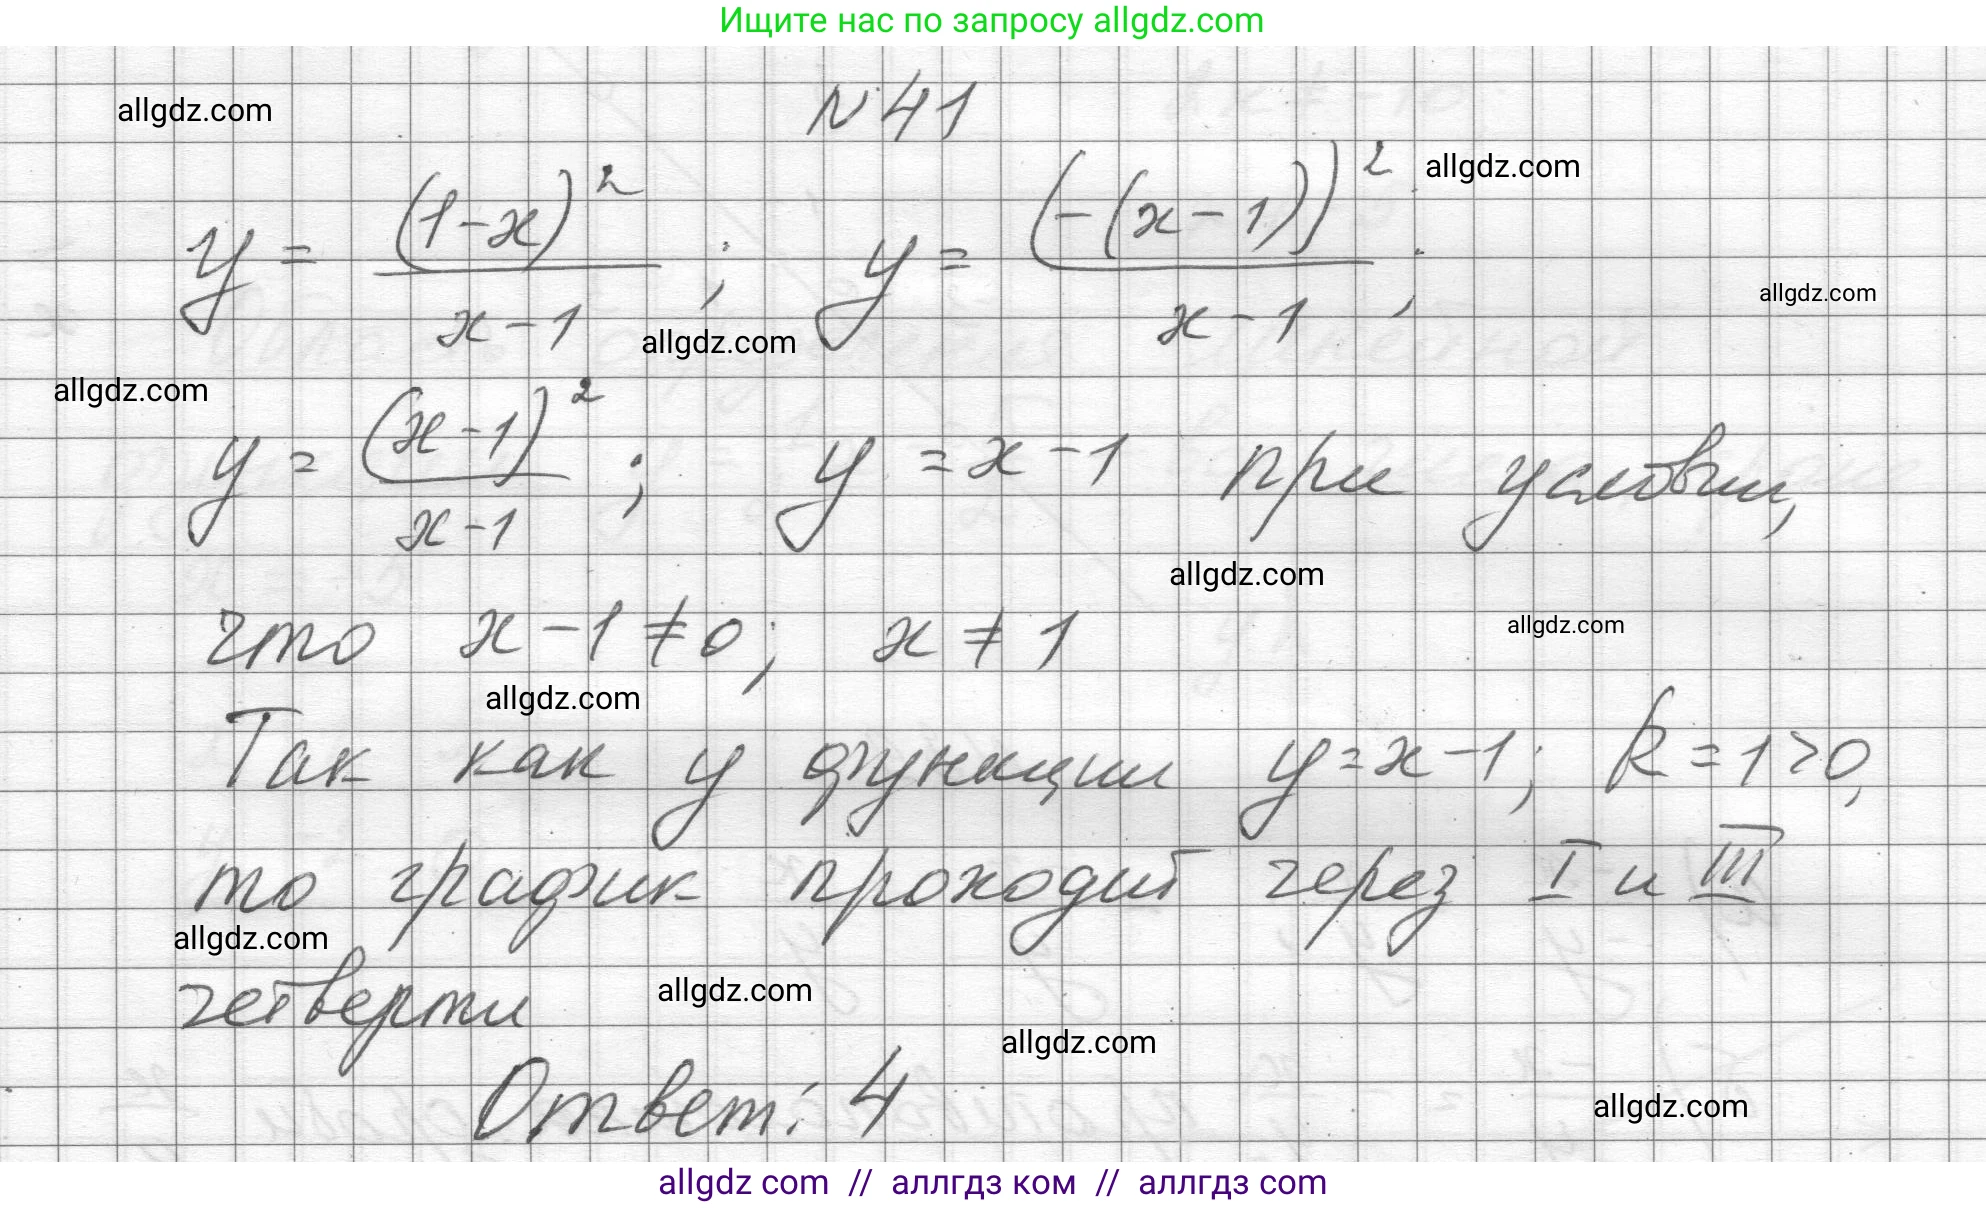 Ищите нас по запросу allgdz.com
allgdz.com
N 41
allgdz.com
y = (1-x)² / x-1 ; y = (-(x-1))² / x-1 ;
allgdz.com
allgdz.com
allgdz.com
y = (x-1)² / x-1 ; y = x-1 при условии,
allgdz.com
что x-1≠0; x≠1
allgdz.com
allgdz.com
Так как у функции y=x-1; k=1>0,
то график проходит через I и III
allgdz.com
четверти
allgdz.com
allgdz.com
Ответ: 4
allgdz.com
allgdz com // аллгдз ком // аллгдз com